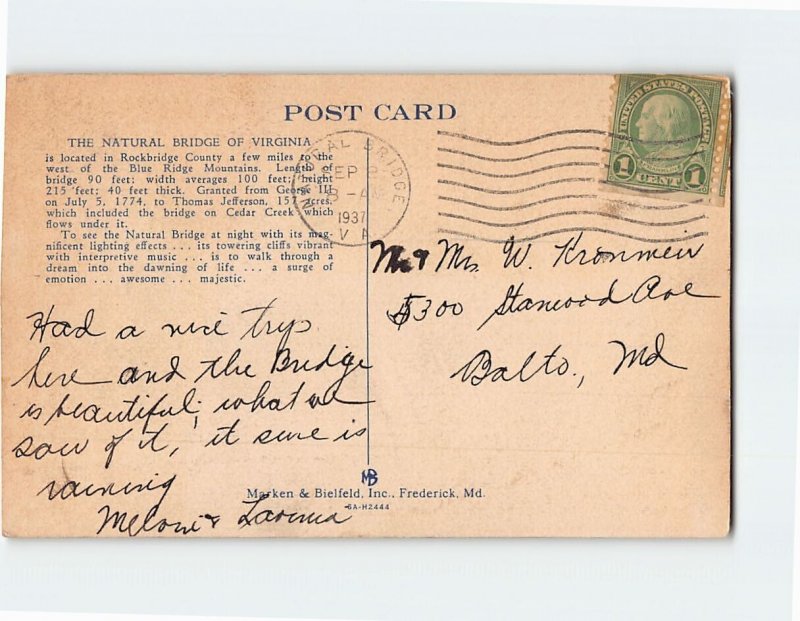 POST CARD
THE NATURAL BRIDGE OF VIRGINIA
is located in Rockbridge County a few miles to the
west of the Blue Ridge Mountains. Length of
bridge 90 feet; width averages 100 feet; height
215 feet; 40 feet thick. Granted from George III
on July 5, 1774, to Thomas Jefferson, 157 acres,
which included the bridge on Cedar Creek which
flows under it.
To see the Natural Bridge at night with its mag-
nificent lighting effects ... its towering cliffs vibrant
with interpretive music ... is to walk through a
dream into the dawning of life ... a surge of
emotion ... awesome ... majestic.
NATURAL BRIDGE
SEP
1937
VA
UNITED STATES POSTAGE
1 CENT 1
Mr & Mrs. W. Kronmeir
5300 Stanwood Ave
Balto., Md
Had a nice trip
here and the Bridge
is beautiful, what we
saw of it, it sure is
raining
& Lavinia
MB
Marken & Bielfeld, Inc., Frederick, Md.
6A-H2444